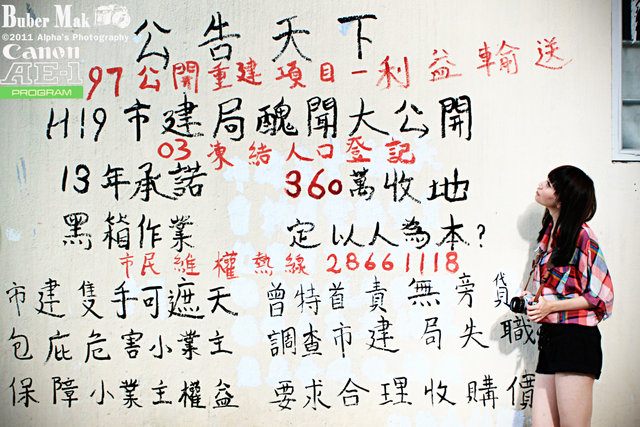 Buber Mak
©2011 Alpha's Photography
Canon
AE-1
PROGRAM
公告天下
97公開重建項目一利益輸送
H!9市建局醜聞大公開
03凍結人口登記
13年承諾 360萬收地
黑箱作業 定以人為本?
市民維權熱線 28661118
市建隻手可遮天 曾特首責無旁貸
包庇危害小業主 調查市建局失職
保障小業主權益 要求合理收購價